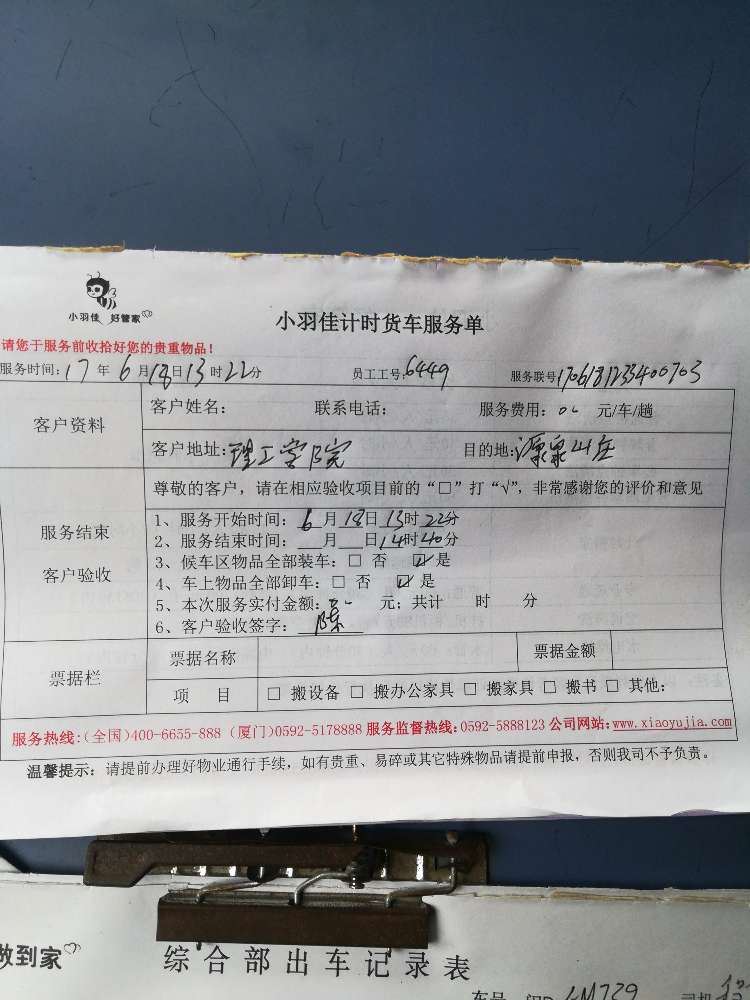 小羽佳 好管家
小羽佳计时货车服务单
请您于服务前收拾好您的贵重物品！
服务时间：17年6月18日13时22分 员工工号：6449 服务联号170618123400703
客户资料
客户姓名： 联系电话： 服务费用： 元/车/趟
客户地址：理工学院 目的地：源泉山庄
服务结束
客户验收
尊敬的客户，请在相应验收项目前的“□”打“√”，非常感谢您的评价和意见
1、服务开始时间：6月18日13时22分
2、服务结束时间：__月__日14时40分
3、候车区物品全部装车：□ 否 ☑ 是
4、车上物品全部卸车：□ 否 ☑ 是
5、本次服务实付金额： 元；共计 时 分
6、客户验收签字：陈
票据栏
票据名称 票据金额
项 目 □ 搬设备 □ 搬办公家具 □ 搬家具 □ 搬书 □ 其他：
服务热线：(全国)400-6655-888 (厦门)0592-5178888 服务监督热线：0592-5888123 公司网站：www.xiaoyujia.com
温馨提示：请提前办理好物业通行手续，如有贵重、易碎或其它特殊物品请提前申报，否则我司不予负责。
做到家
综合部出车记录表